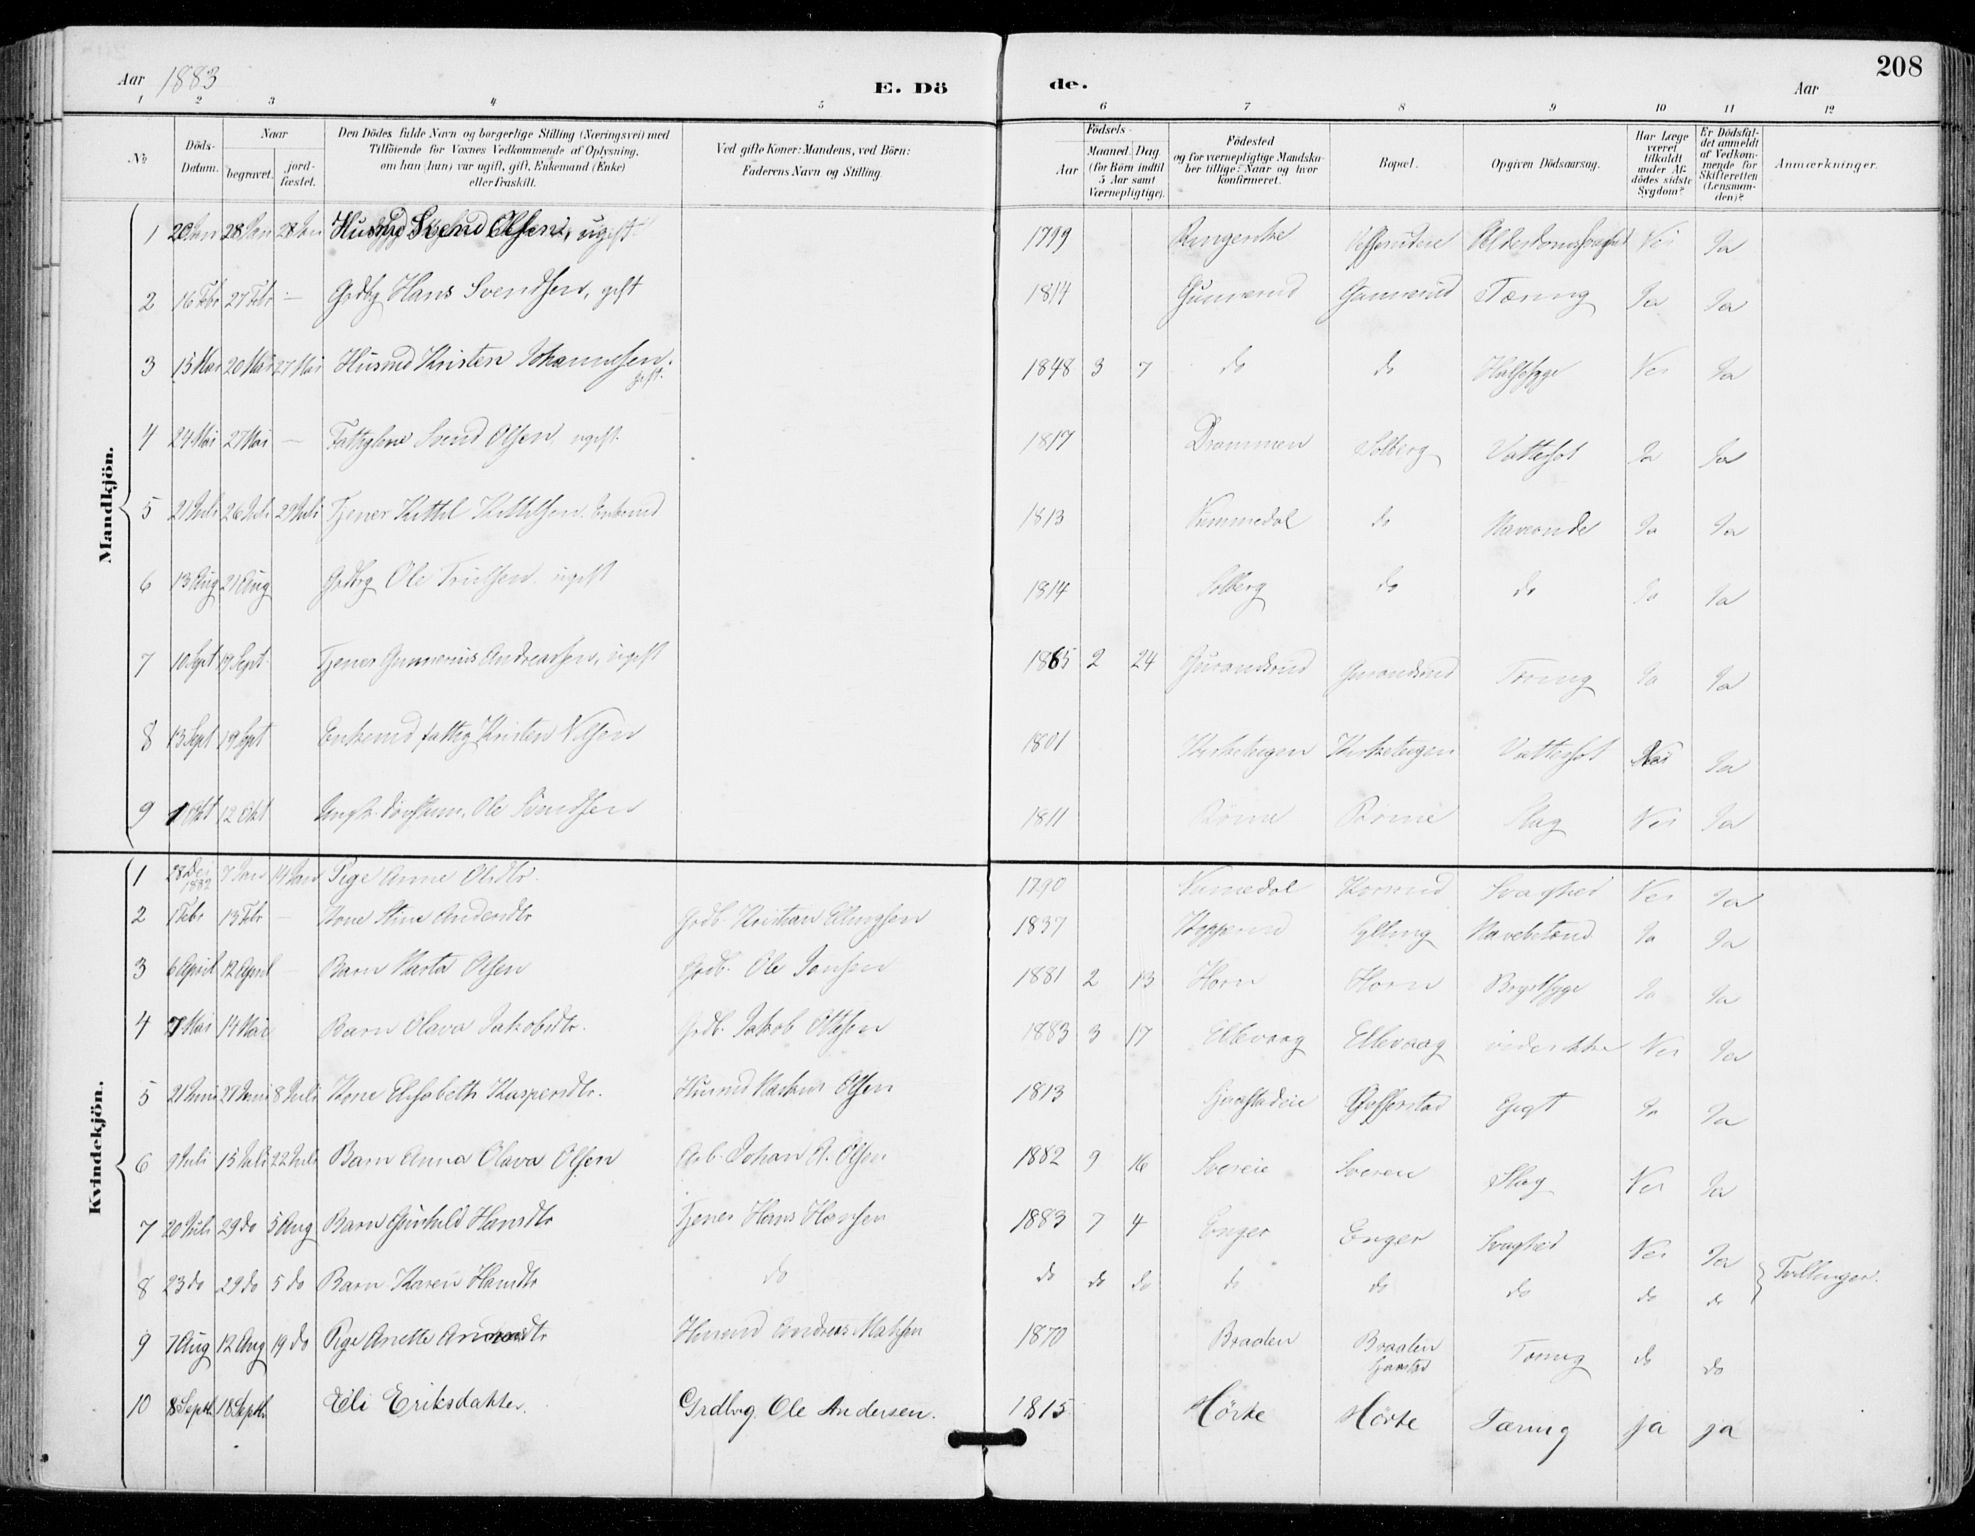 208
Aar 1883
E. Dö
de.
Aar
1 2 3 4 5 6 7 8 9 10 11 12
№
Döds-Datum.
Naar
begravet.
jord-fæstet.
Den Dödes fulde Navn og borgerlige Stilling (Næringsvei) med
Tilföiende for Voxnes Vedkommende af Oplysning,
om han (hun) var ugift, gift, Enkemand (Enke)
eller fraskilt.
Ved gifte Koner: Mandens, ved Börn:
Faderens Navn og Stilling.
Födsels-
Aar
Maaned. Dag
(for Börn indtil
5 Aar samt
Værnepligtige).
Födested
og for værnepligtige Mandska-
ber tillige: Naar og hvor
konfirmeret.
Bopæl.
Opgiven Dödsaarsag.
Har Læge
været
tilkaldt
under Af-
dödes sidste
Sygdom?
Er Dödsfal-
det anmeldt
af Vedkom-
mende for
Skifteretten
(Lensman-
den)?
Anmærkninger.
Mandkjön.
1 20 Jan 28 Jan 28 Jan Svend Olsen, ugift 1799 Ringerike Nei Ja
2 16 Febr 27 Febr — Grdbg Hans Svendsen, gift 1814 Gunnerud Gunnerud Tæring Ja Ja
3 15 Mai 20 Mai 27 Mai Husmd Kristen Johannesen. gift. 1848 3 7 do do Halssyge Nei Ja
4 24 Mai 27 Mai — Svend Olsen ugift. 1817 Drammen Solberg Vattersot Ja Ja
5 21 Juli 26 Juli 29 Juli Tjener Kittil Kittilsen. Enkemd 1813 Nummedal do Maveonde Ja Ja
6 13 Aug 21 Aug Grdbrg Ole Trulsen ugift 1814 Solberg do do Ja Ja
7 10 Sept 19 Sept Tjener Gunnerius Andreassen, ugift 1865 2 24 Gurandsrud Gurandsrud Tæring Ja Ja
8 13 Sept 19 Sept Enkemd fattig Kristen Nilsen 1801 Vattersot Nei Ja
9 1 Okt 12 Okt Ole Svendsen 1811 Slag Nei Ja
Kvindekjön.
1 28 Dec 1882 7 Jan 14 Jan Pige Anne Olsdtr. 1790 Numedal Svaghed Nei Ja
2 1 Febr 13 Febr — Kone Stine Andersdtr Grdb. Kristian Ellingsen 1837 Sylling Ja Ja
3 6 April 12 April — Barn Marta Olsen Grdb. Ole Jonsen 1881 2 13 Horn Horn Brystsyge Ja Ja
4 7 Mai 14 Mai Barn Olava Jakobsdtr. Grdb. Jakob Olsen 1883 3 17 Ellevaag Ellevaag vides ikke Nei Ja
5 21 Juni 27 Juni 8 Juli Kone Elisabeth Kaspersdtr. Husmd Markus Olsen 1813 Gigt Ja Ja
6 9 Juli 15 Juli 22 Juli Barn Anna Olava Olsen Arb. Johan A. Olsen 1882 9 16 Slag Nei Ja
7 20 Juli 29 do 5 Aug Barn Gunhild Hansdtr Tjener Hans Hansen 1883 7 4 Enger Enger Svaghed Nei Ja
8 23 do 29 do 5 do Barn Karen Hansdtr do do do do do do do do do Tvillinger.
9 7 Aug 12 Aug 19 do Pige Anette Andreasdtr Husmd Andreas Matsen 1870 Braaten Braaten Tæring do do
10 8 Septr 18 Septr Eli Eriksdatter. Grdbrg. Ole Andersen. 1815 Hörte Hörte Tæring ja ja